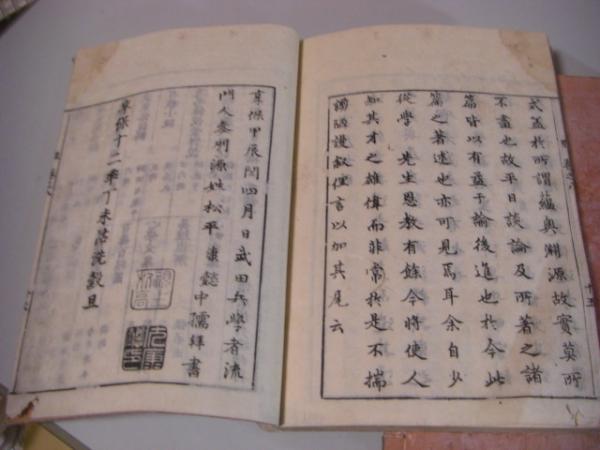 式蓋於所謂蘊奥淵源故實莫所
不盡也故平日談論及所著之諸
篇皆以有益于諭後進也於今此
篇之著述也亦可見焉耳余自少
從學　先生恩教有餘今將使人
知其才之雄偉而非常於是不揣
謭陋謾叙俚言以加其尾云
享保甲辰閏四月日武田兵學者流
門人參州源姓松平康懿中孺拜書
享保十二年丁未菭洗穀旦